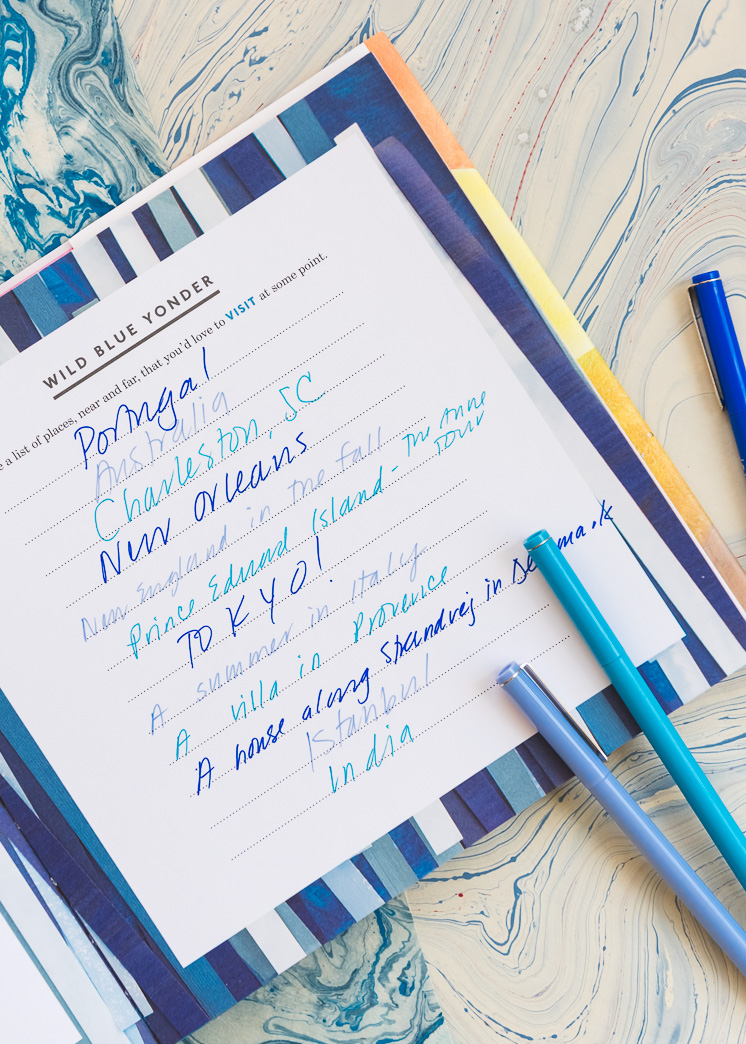 WILD BLUE YONDER
e a list of places, near and far, that you'd love to VISIT at some point.
Portugal
Australia
Charleston, SC
New Orleans
New England in the fall
Prince Edward Island - The Anne
TOUR
TOKYO!
A summer in Italy
A villa in Provence
A house along Strandvej in Denmark
Istanbul
India